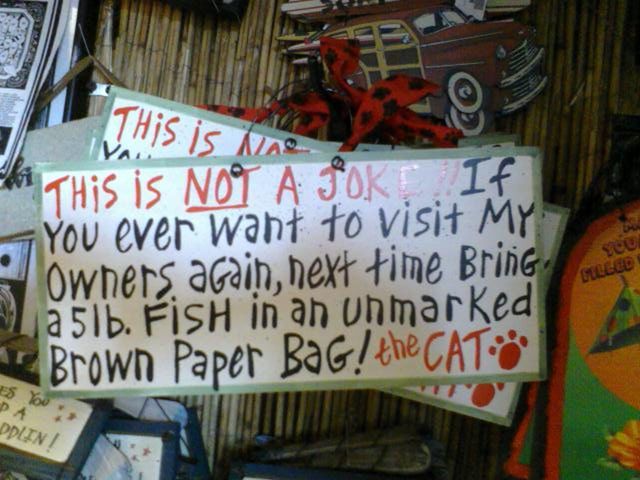 THiS is NOT
YOU
THIS is NOT A JOKE!! If
YOU ever want to visit MY
Owners again, next time Bring
a 5lb. FiSH in an unmarked
Brown Paper BAG! the CAT
YOU
FILLED
YOU
P A
DDLIN!